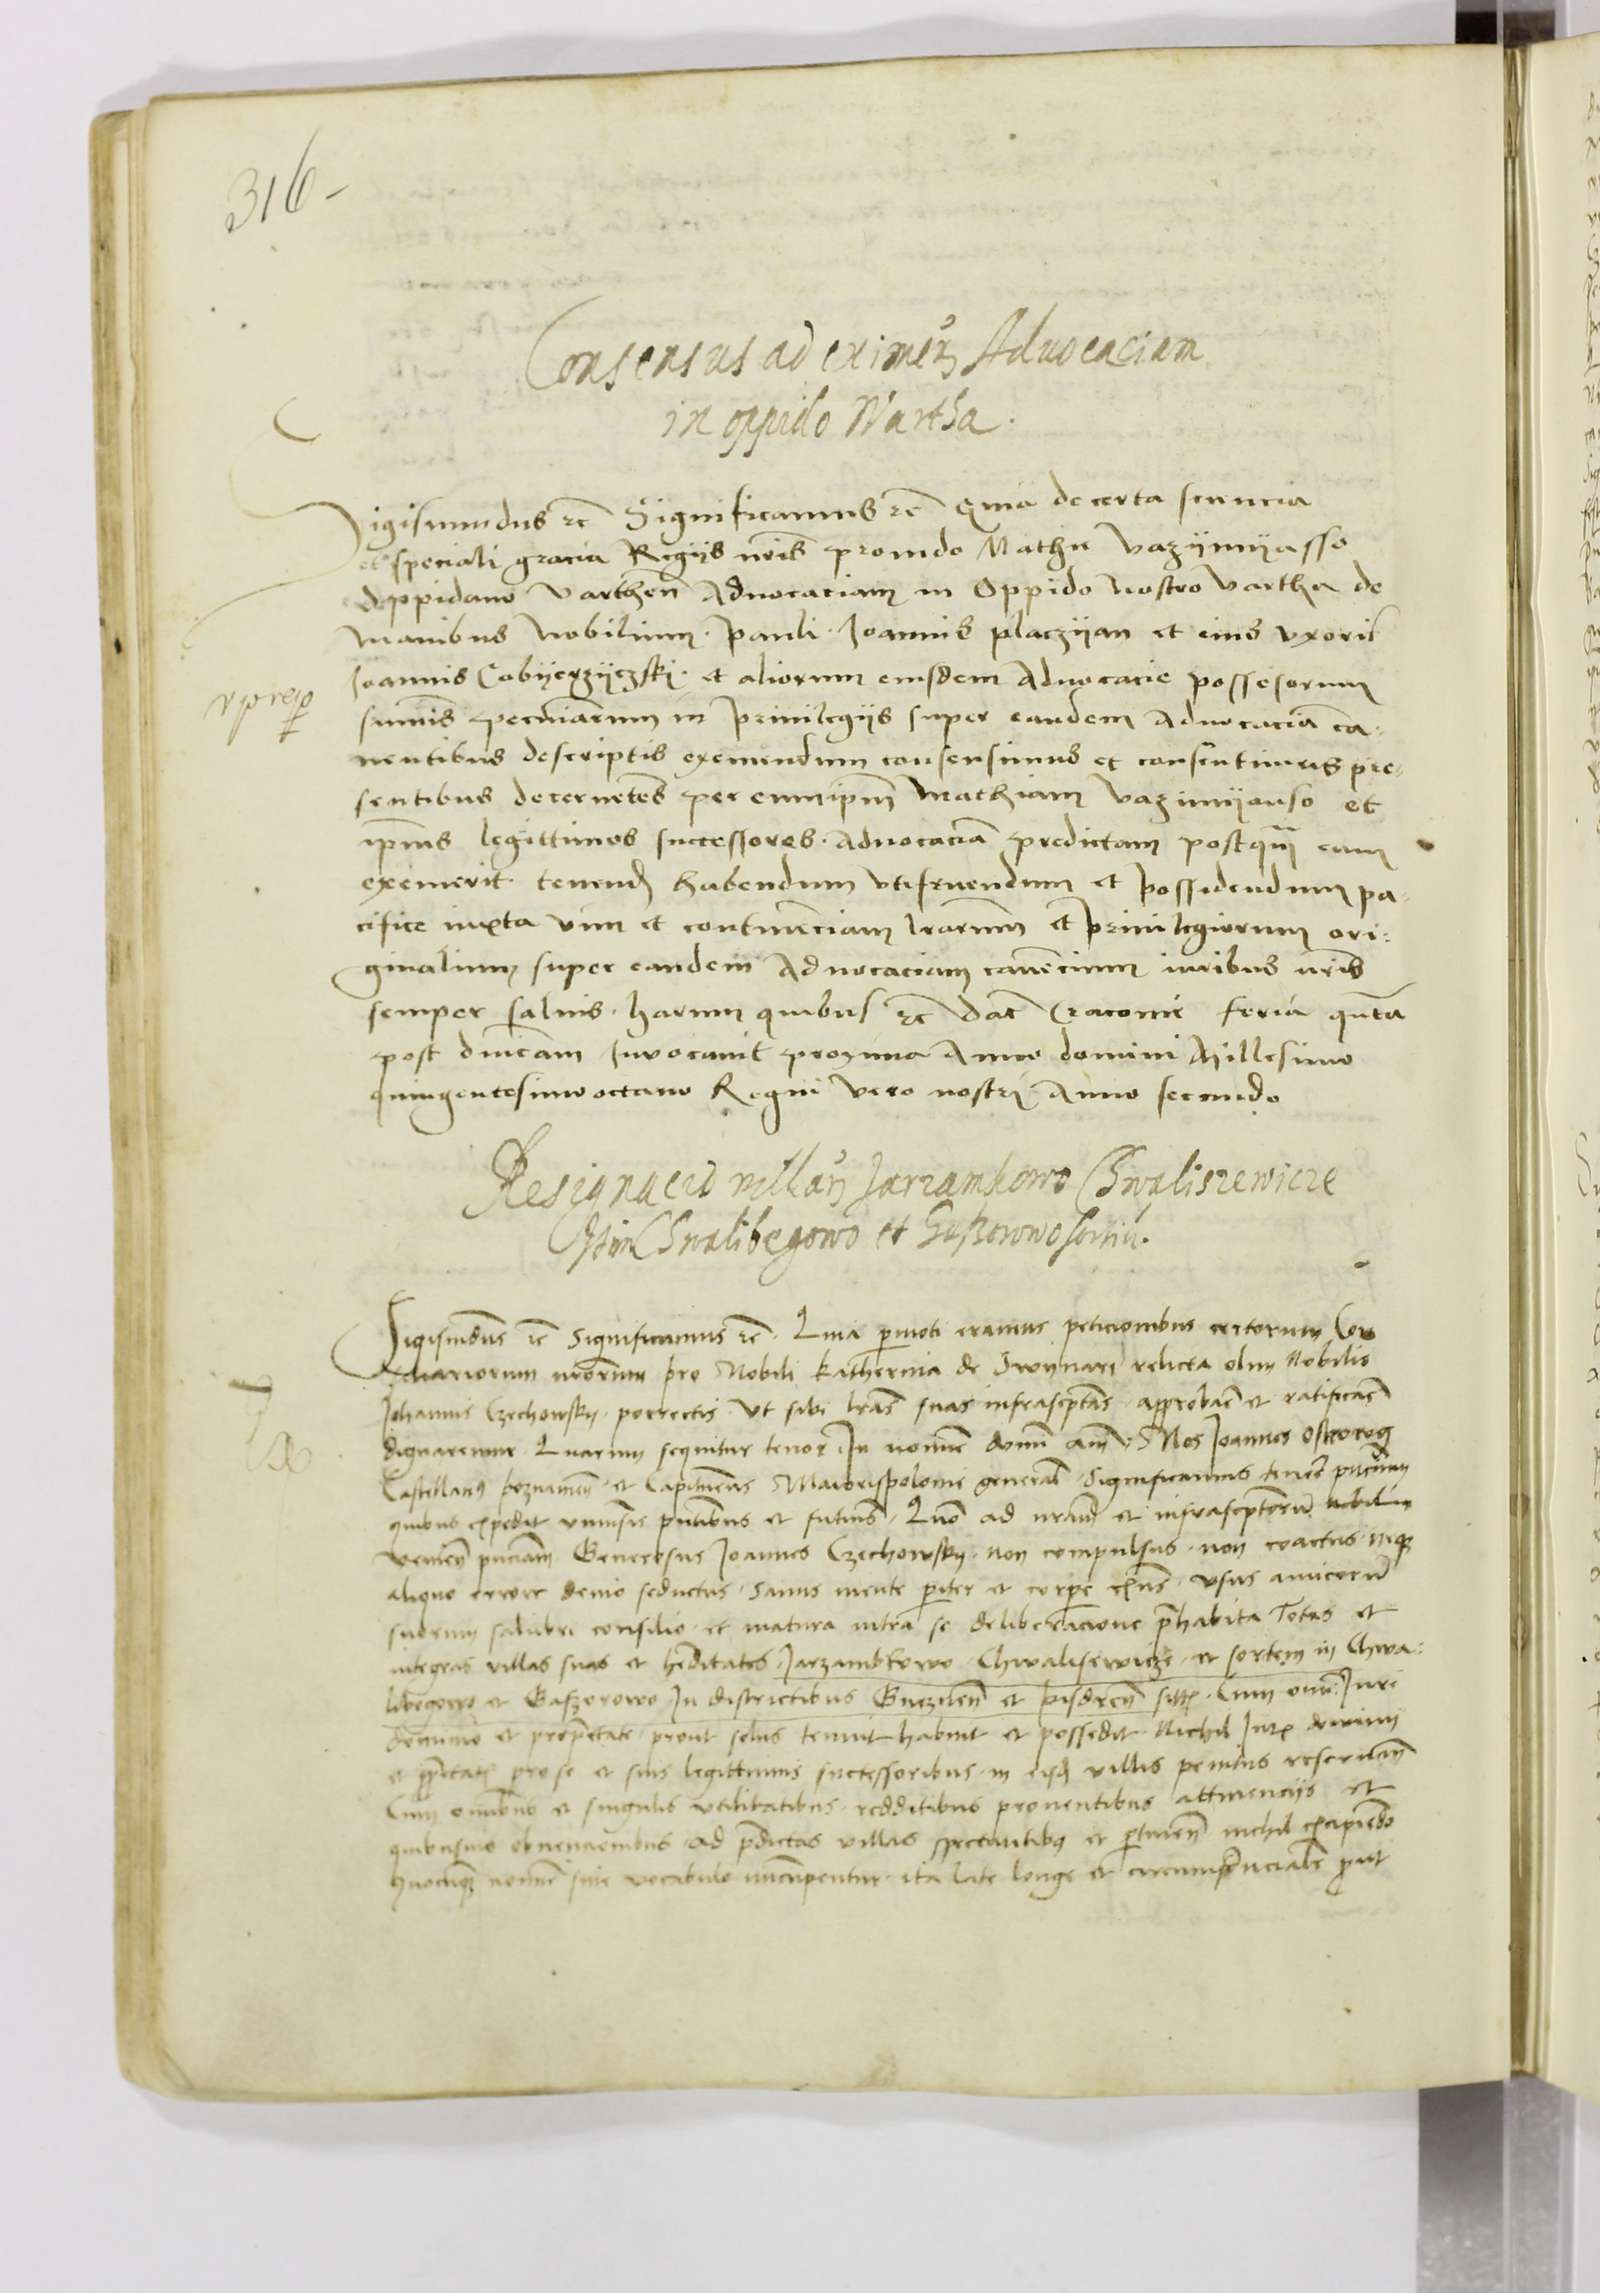 316-
Consensus ad eximen̄ Aduocaciam
in oppido Wartha.
Sigismundus ēc Significamus ēc Quia de certa sciencia
et speciali gracia Regijs nr̄is prouido Mathie Vazijmijasso
Oppidano Varthen̄ Aduocaciam in Oppido nostro Vartha de
manibus nobilium. Pauli. Joannis placzijan et eius vxoris
Joannis Cobijerzijczski. et aliorum eiusdem Aduocacie possessorum
sum̄is pecuniarum in priuilegijs super eandem Aduocaciā ca-
uentibus descriptis exemendum consensimus et consentimus pre-
sentibus decernētes per eum ip̄m Mathiam Vazimijanso et
ip̄ius legittimos successores. Aduocaciā predictam postq̄ eam
exemerit tenend̄ habendum vtifruendum et possidendum pa-
cifice iuxta vim et continēciam lr̄arum et priuilegiorum ori-
ginalium super eandem Aduocaciam cauēcium iuribus nr̄is
semper saluis. harum quibus ēc Dat̄ Cracouie feria qn̄ta
post dn̄icam Inuocauit proxima Anno domini Millesimo
quingentesimo octauo Regni vero nostri Anno secundo
Resignacio villar̄ Jarzambkowo Chwaliszewicze
Chwalibegowo et Gaszorowo sortiū.
Sigism̄dus ēc Significamus ēc. Quia p̄moti eramus peticionibus certorum Con
siliariorum nr̄orum pro Nobili Katherina de relicta olim Nobilis
Johannis Czechowskij. porrectis. Vt sibi lr̄as suas infrasc̄ptas. approbar̄e et ratificar̄e
dignaremur. Quarum sequitur tenor. In nomine dn̄i am̄. Nos Joannes Ostrorog
Castellanus poznanien̄. et Capitaneus Maiorispolonie general̄. Significamus tenor̄e
quibus expedit vniu̇sis pn̄tibus et futuris. Quō ad nr̄am et infrasc̄ptorū nobiliū
venien̄ Generosus Joannes Czechowskij. non compulsus. non coactus. neq̄
aliquo errore deuio seductus. Sanus mente p̄iter et corpore exn̄s. vsus amicorū
suorum salubri consilio. et matura intra se deliberacione p̄habita Totas et
integras villas suas et her̄ditates. Jarzambkowo. Chwalisewicze. et sortem in Chwa-
libegowo et Gaszorowo In districtibus Gneznen̄ et pisdren̄ sitt̄. Cum omni Iuri
dominio et prop̄etate. prout solus tenuit habuit et possedit. Nichil Iuris dominij
et pro se et suis legittimis successoribus. in eisd̄ villis penitus reseruan̄
Cum omībus et singulis vtilitatibus. redditibus prouentibus attinencijs et
quibusuis obuencionibus. ad p̄dictas villas spectantibus et p̄tinen̄ nichil excipiendo
quocunq̄ nomine siue vocabulo nuncupentur. ita late longe et circumferencialr̄ prout